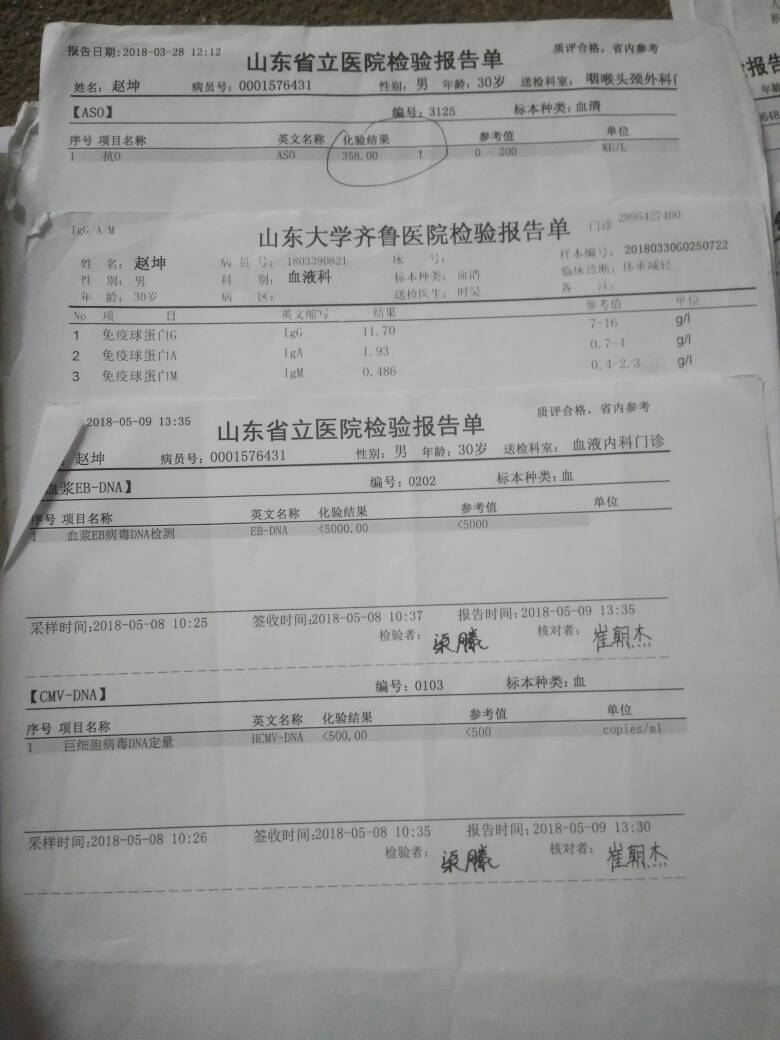 报告日期:2018-03-28 12:12 山东省立医院检验报告单 质评合格，省内参考
姓名：赵坤 病员号：0001576431 性别：男 年龄：30岁 送检科室：咽喉头颈外科门
【ASO】 编号：3125 标本种类：血清
序号 项目名称 英文名称 化验结果 参考值 单位
1 抗O ASO 358.00 ↑ 0 - 200 KU/L
IgG/A/M 山东大学齐鲁医院检验报告单 门诊 2895427400
姓 名：赵坤 病 员 号：1803390821 床 号： 样本编号：20180330G0250722
性 别：男 科 别：血液科 标本种类：血清 临床诊断：体重减轻
年 龄：30岁 病 区： 送检医生：时昊 备 注：
No 项 目 英文缩写 结果 参考值 单位
1 免疫球蛋白G IgG 11.70 7-16 g/l
2 免疫球蛋白A IgA 1.93 0.7-4 g/l
3 免疫球蛋白M IgM 0.486 0.4-2.3 g/l
2018-05-09 13:35 山东省立医院检验报告单 质评合格，省内参考
赵坤 病员号：0001576431 性别：男 年龄：30岁 送检科室：血液内科门诊
血浆EB-DNA】 编号：0202 标本种类：血
序号 项目名称 英文名称 化验结果 参考值 单位
1 血浆EB病毒DNA检测 EB-DNA <5000.00 <5000
采样时间:2018-05-08 10:25 签收时间:2018-05-08 10:37 报告时间:2018-05-09 13:35
检验者： 核对者：崔朝杰
【CMV-DNA】 编号：0103 标本种类：血
序号 项目名称 英文名称 化验结果 参考值 单位
1 巨细胞病毒DNA定量 HCMV-DNA <500.00 <500 copies/ml
采样时间:2018-05-08 10:26 签收时间:2018-05-08 10:35 报告时间:2018-05-09 13:30
检验者： 核对者：崔朝杰